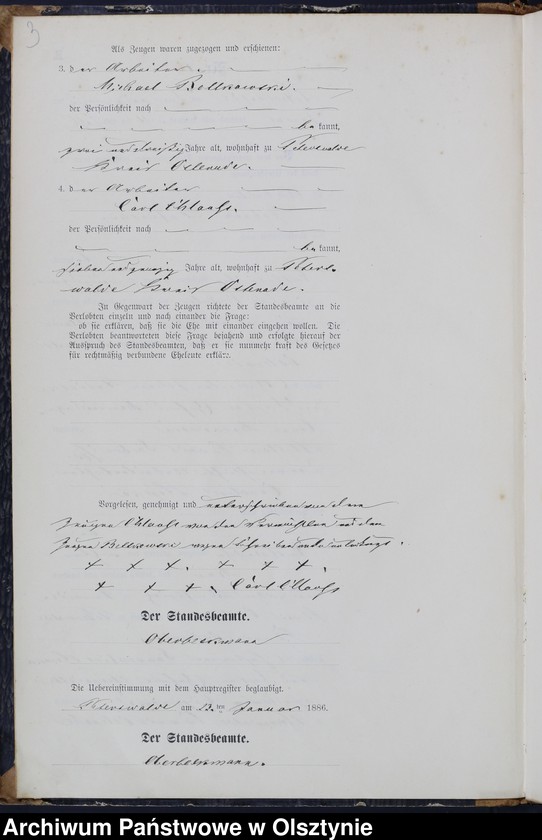 3
Als Zeugen waren zugezogen und erschienen:
3. der Arbeiter
Michael Belkowski.
der Persönlichkeit nach
bekannt,
zwei und dreißig Jahre alt, wohnhaft zu Peterswalde
Kreis Osterode.
4. der Arbeiter
Carl
der Persönlichkeit nach
bekannt,
sieben und zwanzig Jahre alt, wohnhaft zu Peters-
walde Kreis Osterode.
In Gegenwart der Zeugen richtete der Standesbeamte an die
Verlobten einzeln und nach einander die Frage:
ob sie erklären, daß sie die Ehe mit einander eingehen wollen. Die
Verlobten beantworteten diese Frage bejahend und erfolgte hierauf der
Ausspruch des Standesbeamten, daß er sie nunmehr kraft des Gesetzes
für rechtmäßig verbundene Eheleute erkläre.
Vorgelesen, genehmigt und unterschrieben von dem
Zeugen von den Vermählten und dem
Zeugen Belkowski wegen
+ + +, + + +,
+ + +, Carl
Der Standesbeamte.
Die Uebereinstimmung mit dem Hauptregister beglaubigt.
Peterswalde am ten Januar 1886.
Der Standesbeamte.
Archiwum Państwowe w Olsztynie